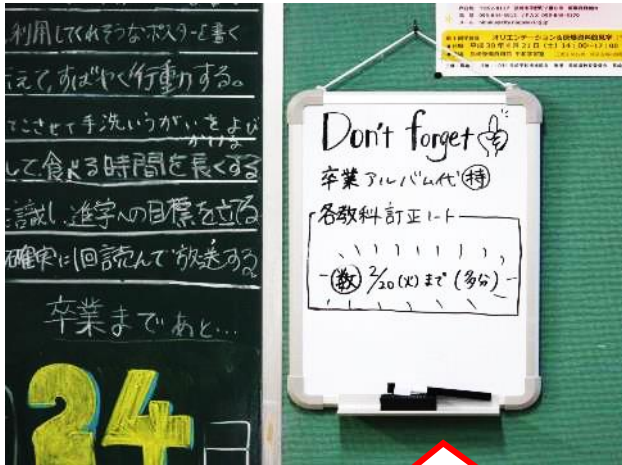 利用してくれそうなポスターを書く
えて、すばやく行動する。
して食べる時間を長くする
識し、進学への目標を立る
確実に1回読んで放送する
卒業まであと…
24日
Don't forget
卒業アルバム代 持
各教科訂正ノート
数 2/20(火)まで(多分)
オリエンテーション&
平成30年4月21日(土)14:00~17:00